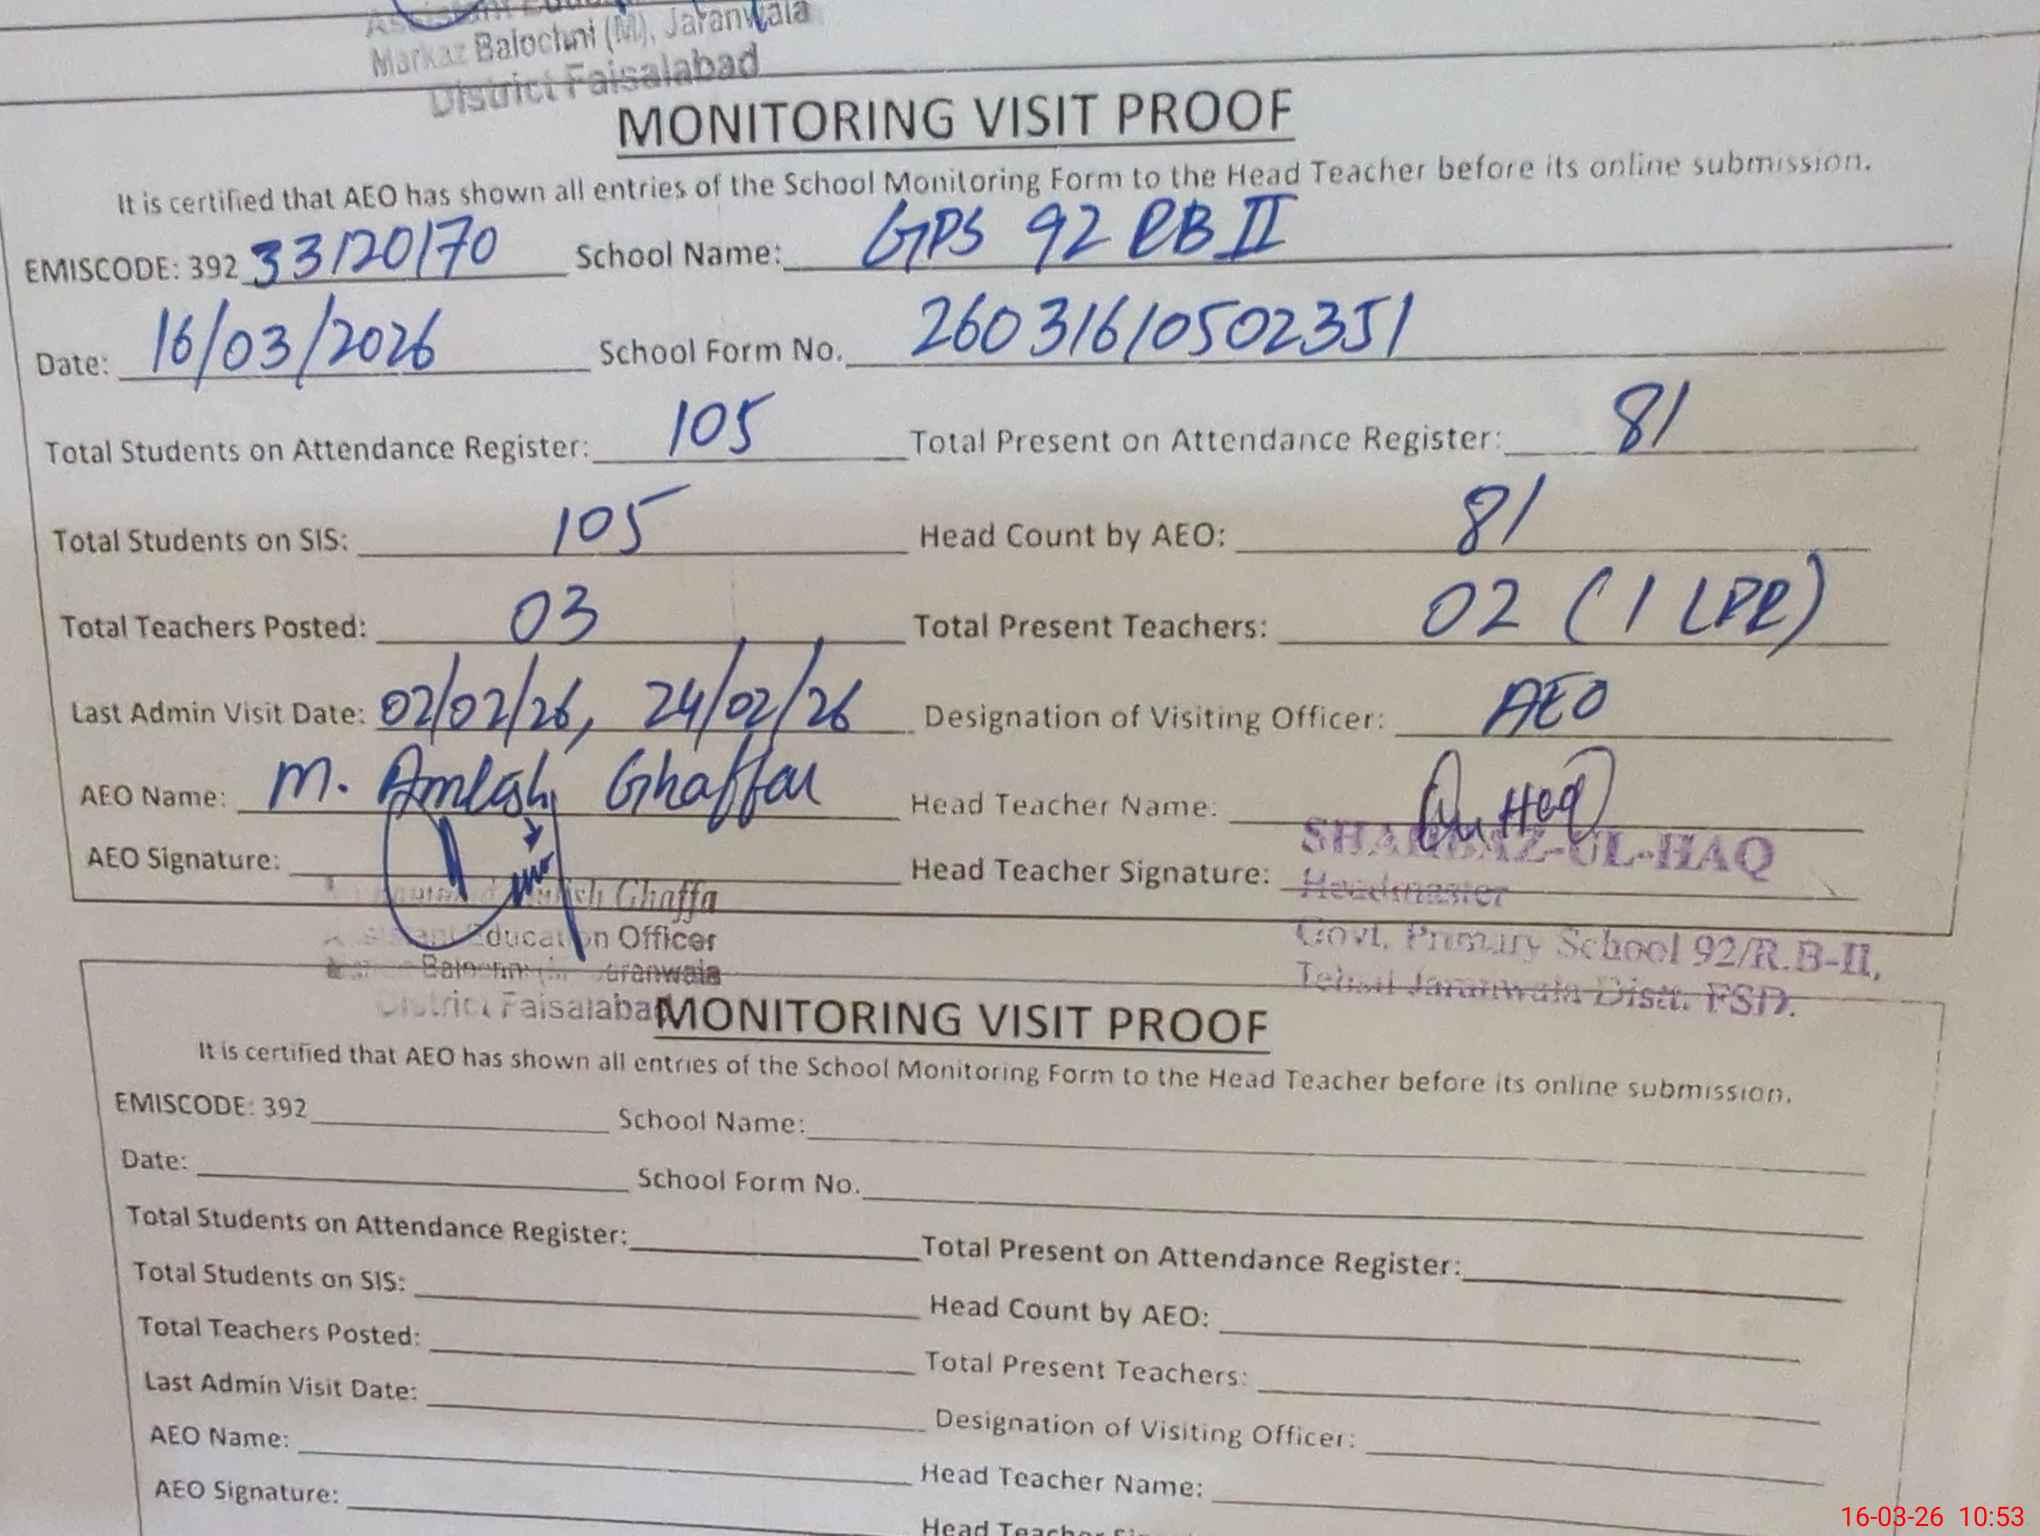 Markaz Balochni (M), Jaranwala
District Faisalabad
MONITORING VISIT PROOF
It is certified that AEO has shown all entries of the School Monitoring Form to the Head Teacher before its online submission.
EMISCODE: 392 33120170 School Name: GPS 92 RB II
Date: 16/03/2026 School Form No. 26031610502351
Total Students on Attendance Register: 105 Total Present on Attendance Register: 81
Total Students on SIS: 105 Head Count by AEO: 81
Total Teachers Posted: 03 Total Present Teachers: 02 (1 LPR)
Last Admin Visit Date: 02/02/26, 24/02/26 Designation of Visiting Officer: AEO
AEO Name: M. Amlish Ghaffar Head Teacher Name:
AEO Signature: Head Teacher Signature:
Ghaffa
Assistant Education Officer
Jaranwala
District Faisalabad
SHAHBAZ-UL-HAQ
Headmaster
Govt. Primary School 92/R.B-II,
Tehsil Jaranwala Distt. FSD.
MONITORING VISIT PROOF
It is certified that AEO has shown all entries of the School Monitoring Form to the Head Teacher before its online submission.
EMISCODE: 392 School Name:
Date: School Form No.
Total Students on Attendance Register: Total Present on Attendance Register:
Total Students on SIS: Head Count by AEO:
Total Teachers Posted: Total Present Teachers:
Last Admin Visit Date: Designation of Visiting Officer:
AEO Name: Head Teacher Name:
AEO Signature: Head Teacher
16-03-26 10:53